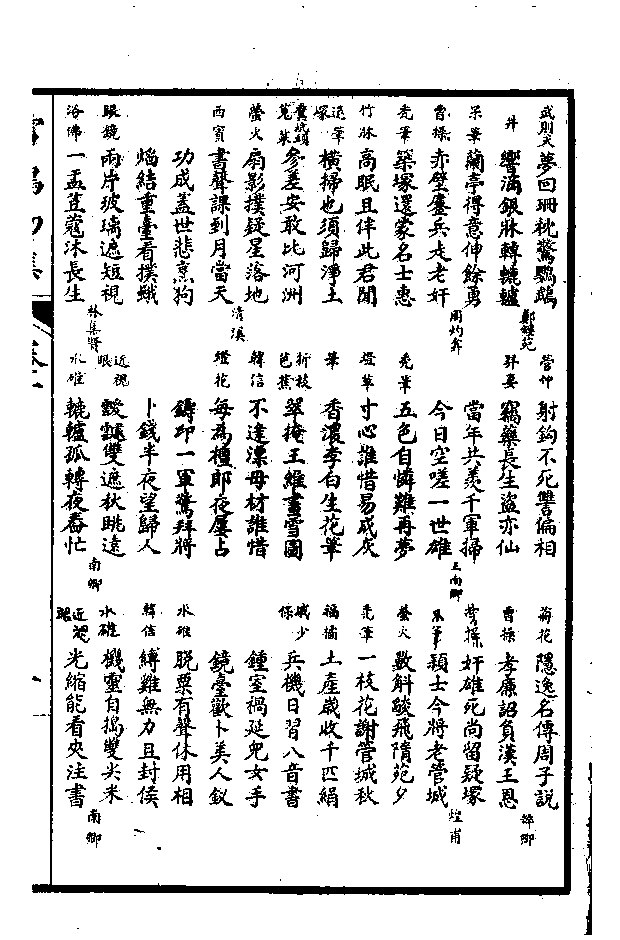 武則天 夢回珊枕驚鸚鵡
井 響滴銀牀轉轆轤 鄭蝶苑
禿筆 蘭亭得意伸餘勇
曹操 赤壁鏖兵走老奸 周灼
禿筆 築塚還蒙名士惠
竹牀 高眠且伴此君閒
退筆塚 橫掃也須歸淨土
糞坑頭莧菜 參差安敢比河洲
螢火 扇影撲疑星落地
西賓 書聲課到月當天 清溪
功成蓋世悲烹狗
焰結重臺看撲蛾
眼鏡 兩片玻璃遮短視
浴佛 一盂荳蔻沐長生
管仲 射鉤不死讐偏相
竊藥長生盜亦仙
當年共羨千軍掃
今日空嗟一世雄 王南卿
禿筆 五色自憐難再夢
燈草 寸心誰惜易成灰
筆 香濃李白生花筆
折枝芭蕉 翠掩王維畫雪圖
韓信 不逢漂母材誰惜
燈花 每為檀郎夜屢占
鑄印一軍驚拜將
卜錢半夜望歸人
近視眼 靉靆雙遮秋眺遠
水碓 轆轤孤轉夜舂忙 南卿
菊花 隱逸名傳周子說
曹操 孝廉詔負漢王恩 韡卿
曹操 奸雄死尚留疑塚
禿筆 穎士今將老管城 煌甫
螢火 數斛酸飛隋苑夕
禿筆 一枝花謝管城秋
福橘 土產歲收千匹絹
減少保 兵機日習八音書
鍾室禍延兒女手
鏡臺歡卜美人釵
水碓 脫粟有聲休用相
韓信 縛雞無力且封侯
水碓 機靈自搗雙尖米
近視眼 光縮能看夾注書 南卿